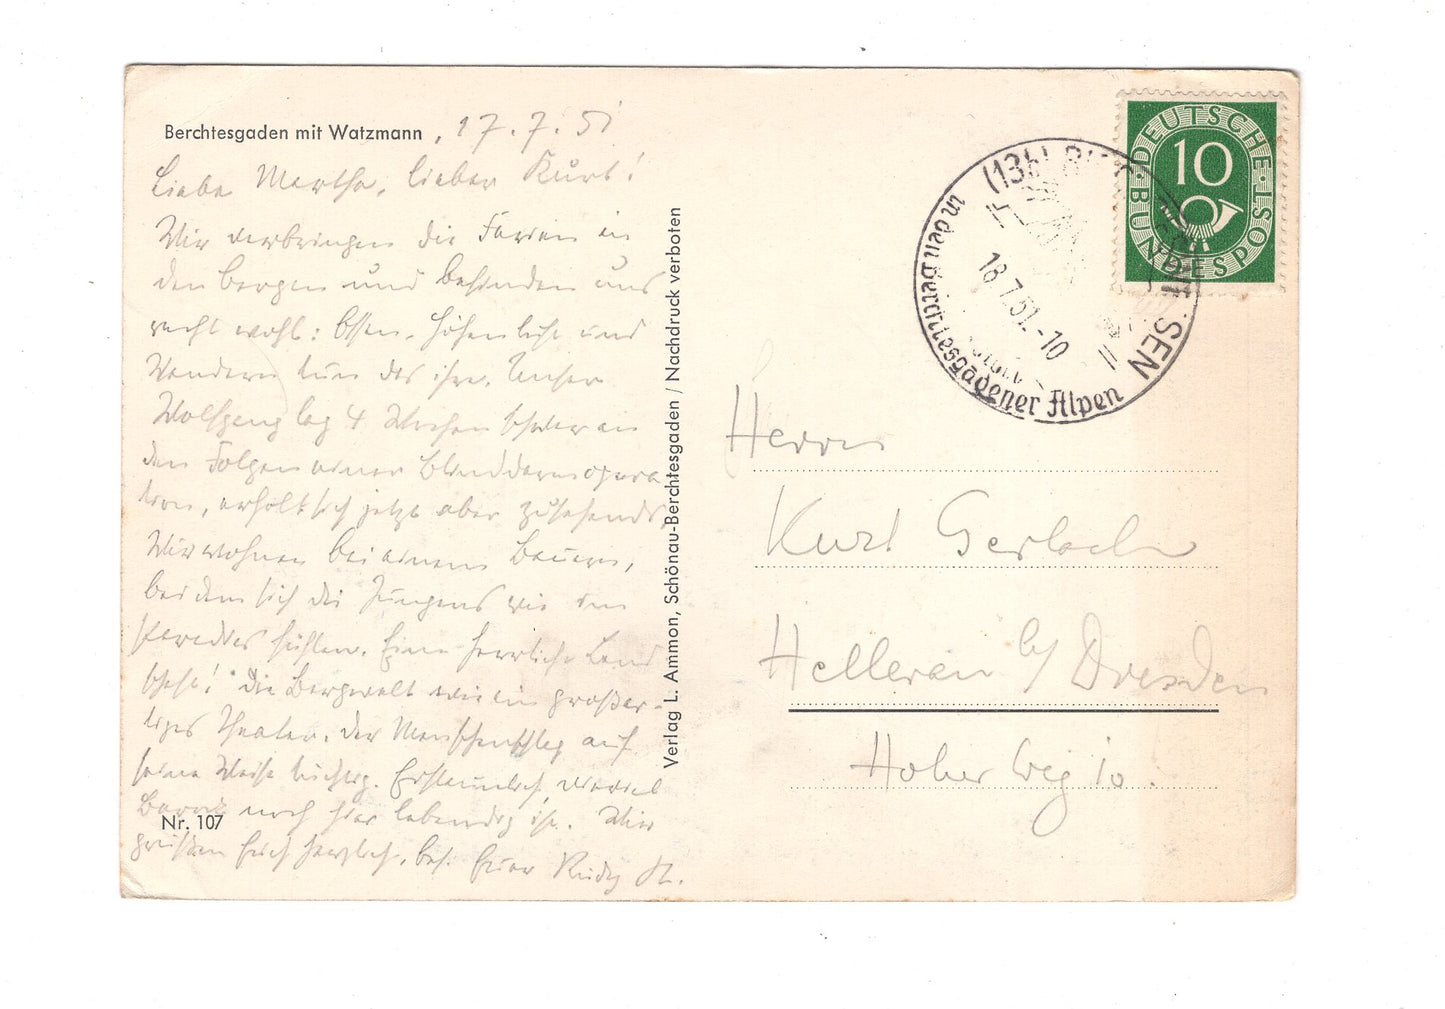 Berchtesgaden mit Watzmann, 17.7.51
Liebe Martha, lieber Kurt!
Wir verbringen die Ferien in
den Bergen und befinden uns
recht wohl: Essen, Höhenluft und
Wandern tun das ihre. Unser
Wolfgang lag 4 Wochen schwer an
den Folgen einer Blinddarmopera
tion, erholt sich jetzt aber zusehends.
Wir wohnen bei einem Bauern,
bei dem sich die Jungens wie im
Paradies fühlen. Eine herrliche Land
schaft! Die Bergwelt wie ein großar-
tiges Theater. Der Menschenschlag auf
seine Weise tüchtig. Erstaunlich, wieviel
Barock noch hier lebendig ist. Wir
grüßen Euch herzlich, bes. Euer Rudy
Nr. 107
Verlag L. Ammon, Schönau-Berchtesgaden / Nachdruck verboten
DEUTSCHE BUNDESPOST
10
(13b)
18.7.51.-10
in den Berchtesgadener Alpen
Herrn
Kurt Gerlach
Hellerau b/ Dresden
Hoher Weg 10.